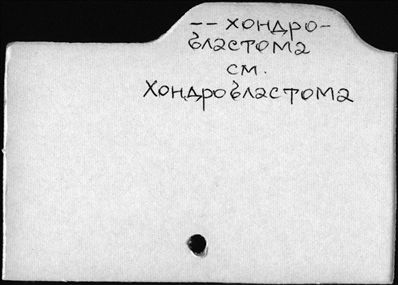 -- хондро-
бластома
см.
Хондробластома